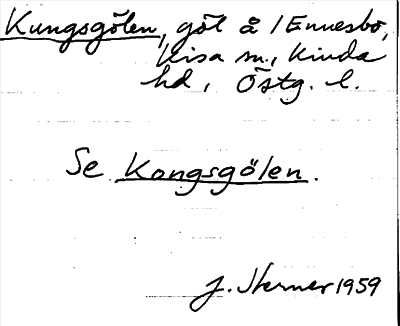 Kungsgölen, göl å 1 Ennesbo,
Kisa sn., Kinda
hd, Östg. l.
Se Kongsgölen.
J. Sterner 1959